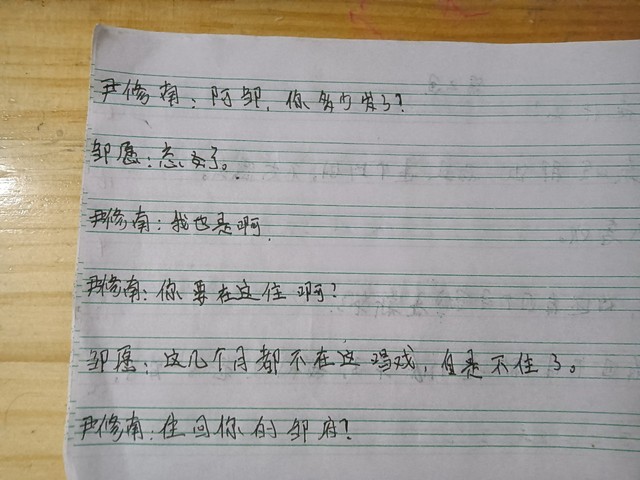 尹修南：阿邹，你多少岁了？
邹愿：了。
尹修南：我也是啊。
尹修南：你要在这住啊？
邹愿：这几个月都不在这唱戏，自是不住了。
尹修南：住回你的邹府？